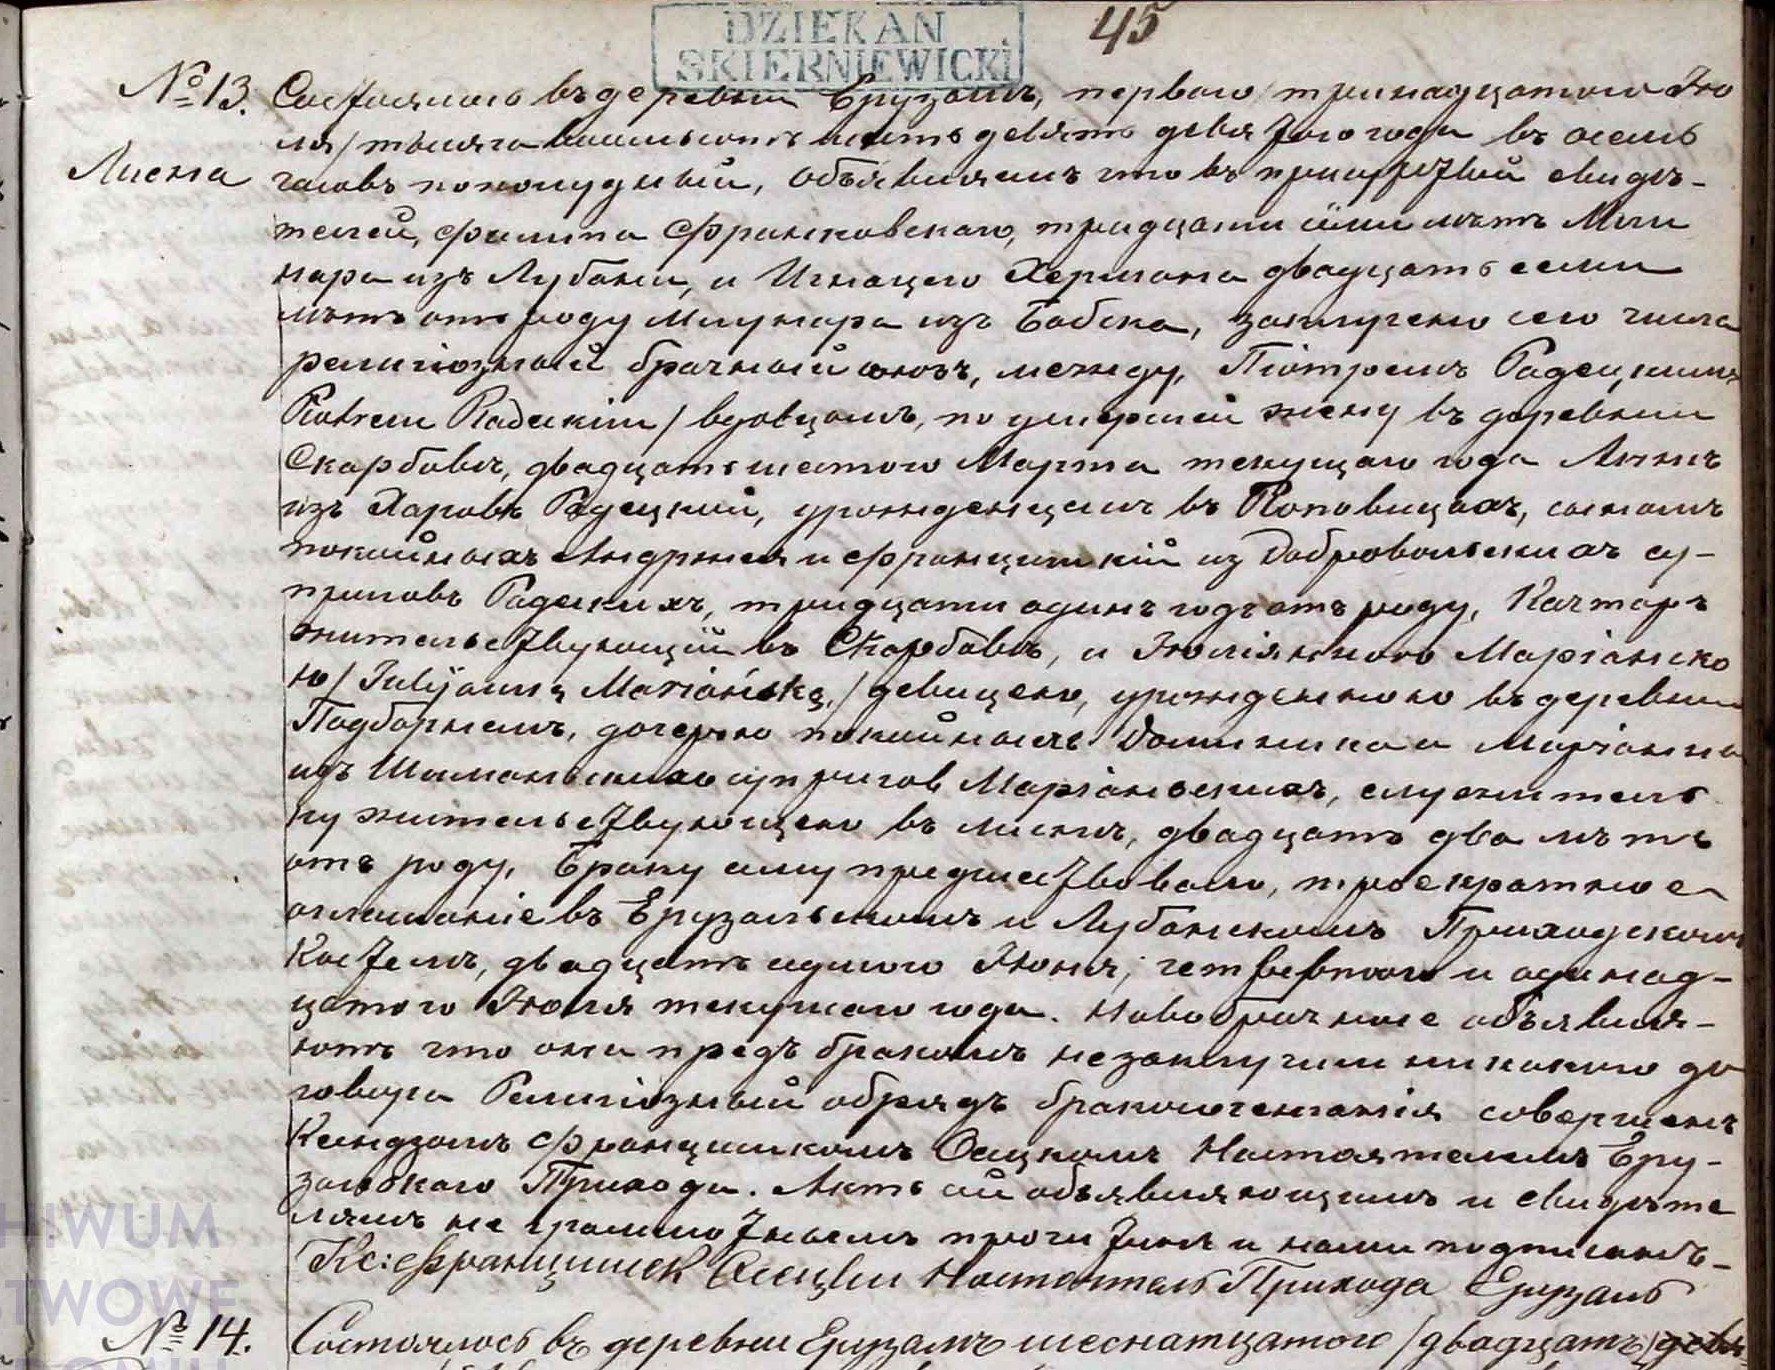 DZIEKAN
SKIERNIEWICKI
45
№ 13. Состоялось въ деревни Ерузаль, перваго / тринадцатого Ію
Лисна
ля / тысяча восемьсотъ девятого года въ осемь
часовъ пополудный, объявляемъ что въ присутствій свидѣ-
телей, Филипа Франковскаго, тридцати лѣтъ Мли
нара изъ Лубани, и Игнацего Хермана двадцать семи
лѣтъ отъ роду млунара изъ Бабска, заключено сего числа
религіозный брачный союзъ, между, Піотремъ Радецкимъ
Piotrem Radeckim / вдовцомъ, по умершей жену въ деревни
Скарбовѣ, двадцать шестого Марта текущаго года Аннѣ
изъ Радецкой, урожденцемъ въ Коповицахъ, сыномъ
покойныхъ Андржея и Францишкій из Добровольскихъ су-
пруговъ Радецкихъ, тридцати одинъ годъ отъ роду, Качмаръ
жительствующій въ Скарбовѣ, и Юліянною Маріанско
ю / Julijanną Mariańską, / девицею, урожденною въ деревни
Подборнемъ, дочерью покойныхъ Доминика и Маріанны
изъ Шиманьскихъ супругов Маріаньскихъ, служитель
ку жительствующею въ Лиснѣ, двадцать два лѣтъ
отъ роду. Браку сему предшествовало, троекратное
оглашаніе въ Ерузальскомъ и Лубанскомъ Приходскомъ
Костелѣ, двадцать одного Іюня, четвертого и одинад-
цатого Іюля текущаго года. Новобрачные объявля-
ютъ что они предъ бракомъ незаключили никакого до
говора Религіозный обрядъ бракосочетанія совершенъ
Ксендзомъ Францишкомъ Осецкомъ Настоятелемъ Еру-
зальскаго Прихода. Актъ сей объявляющимъ и свидѣте
лямъ не грамотнымъ прочитанъ и нами подписанъ-
Кс: Францишек Осецки Настоятель Прихода Ерузаль
№ 14. Состоялось въ деревни Ерузалъ шеснатцатого / двадцать
HIWUM
STWOWE